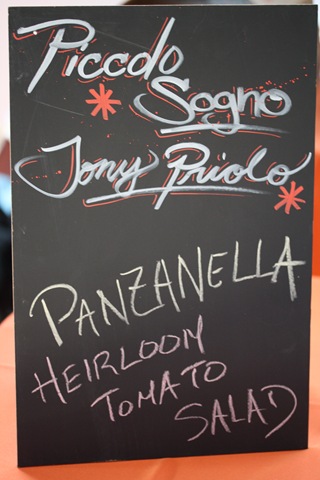 Piccolo
Sogno
Tony Priolo
PANZANELLA
HEIRLOOM
TOMATO
SALAD